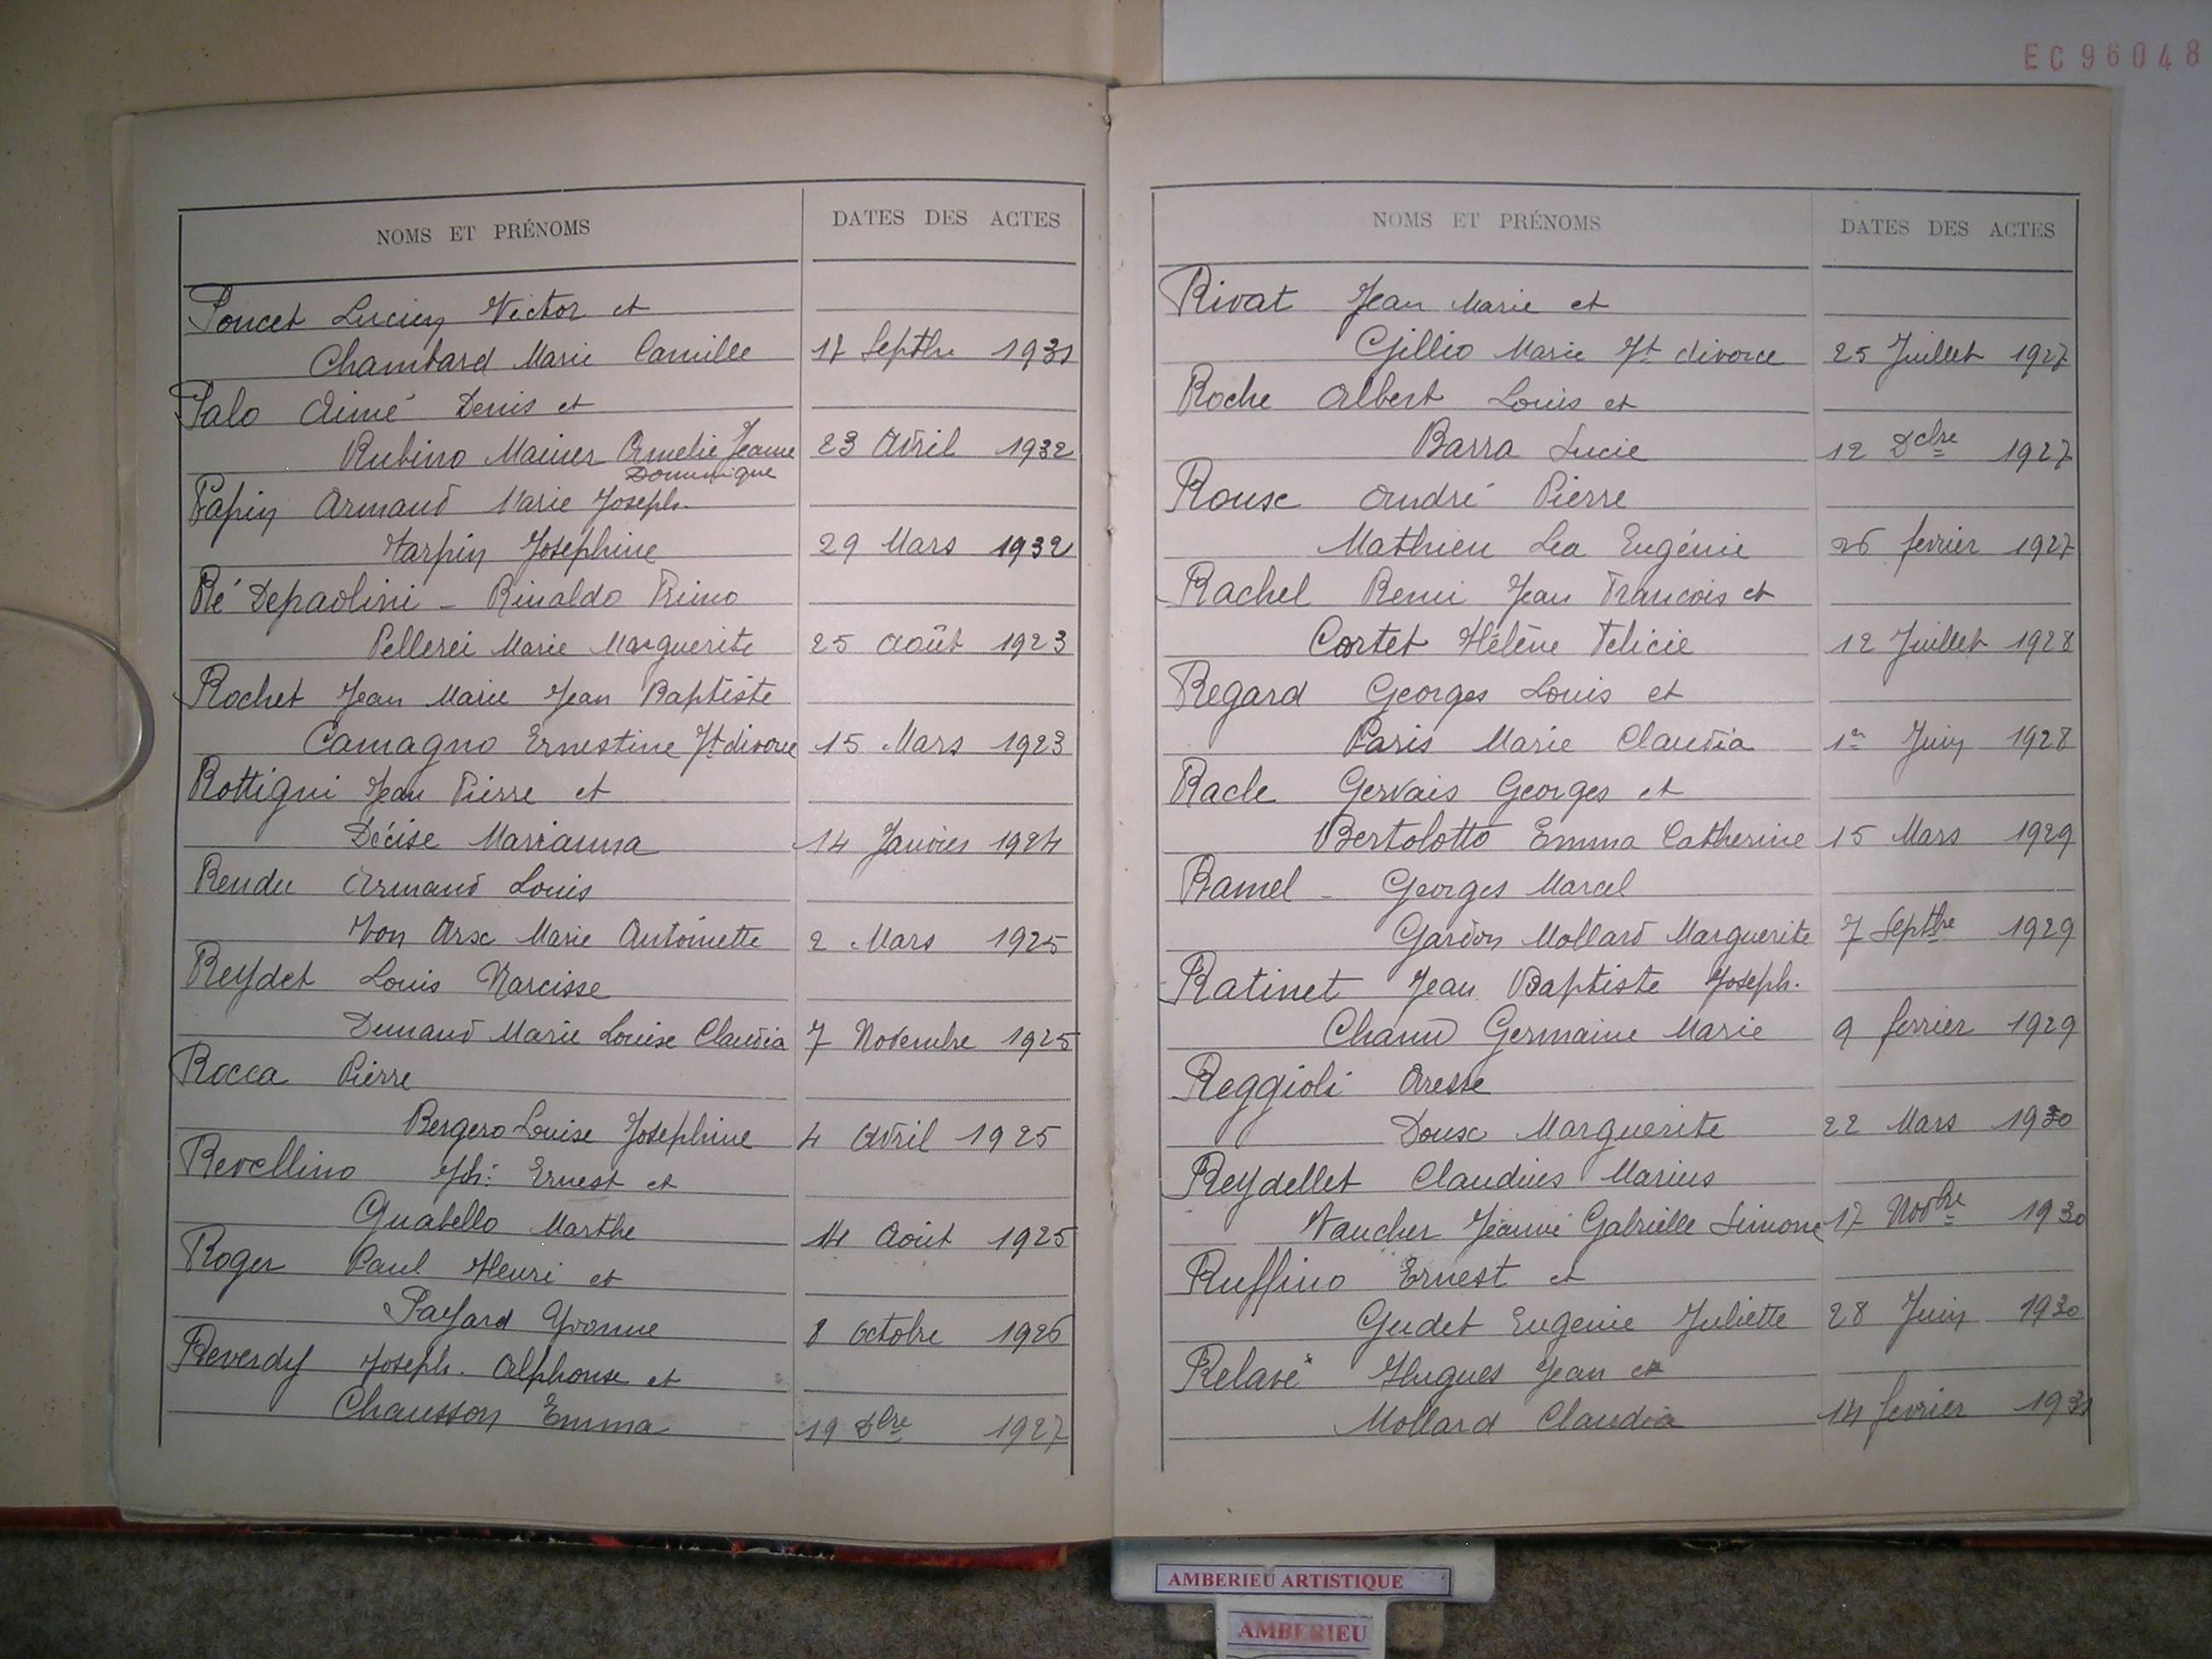 EC96048
NOMS ET PRÉNOMS
DATES DES ACTES
Poncet Lucien Victor et
Chambard Marie Camille 18 Septbre 1931
Palo Aimé Denis et
Rubino Mainer Amelie Jeanne 23 Avril 1932
Dominique
Papin Armand Marie Joseph
Tarpin Joséphine 29 Mars 1932
Ré Depaolini - Rinaldo Primo
Pellerei Marie Marguerite 25 Août 1923
Rochet Jean Marie Jean Baptiste
Camagno Ernestine Jt divorce 15 Mars 1923
Rottigni Jean Pierre et
Décise Marianna 14 Janvier 1924
Rendu Armand Louis
Von Arx Marie Antoinette 2 Mars 1925
Reydet Louis Narcisse
Dunand Marie Louise Claudia 7 Novembre 1925
Rocca Pierre
Bergero Louise Joséphine 4 Avril 1925
Revellino Jph: Ernest et
Quabello Marthe 14 Août 1925
Roger Paul Henri et
Payard Yvonne 8 Octobre 1926
Reverdy Joseph. Alphonse et
Chausson Emma 19 Dbre 1927
NOMS ET PRÉNOMS
DATES DES ACTES
Rivat Jean Marie et
Gillio Marie Jt divorce 25 Juillet 1927
Roche Albert Louis et
Barra Lucie 12 Dcbre 1927
Roux André Pierre
Mathieu Lea Eugénie 26 fevrier 1927
Rachel Remi Jean Francois et
Cortet Hélène Felicie 12 Juillet 1928
Regard Georges Louis et
Paris Marie Claudia 1er Juin 1928
Racle Gervais Georges et
Bertolotto Emma Catherine 15 Mars 1929
Ramel - Georges Marcel
Gardon Mollard Marguerite 7 Septbre 1929
Ratinet Jean Baptiste Joseph.
Chanu Germaine Marie 9 fevrier 1929
Reggioli Oreste
Doux Marguerite 22 Mars 1930
Reydellet Claudius Marius
Vaucher Jeanne Gabrielle Simone 17 Novbre 1930
Ruffino Ernest et
Gudet Eugenie Juliette 28 Juin 1930
Relave Hugues Jean et
Mollard Claudia 14 fevrier 1931
AMBERIEU ARTISTIQUE
AMBERIEU